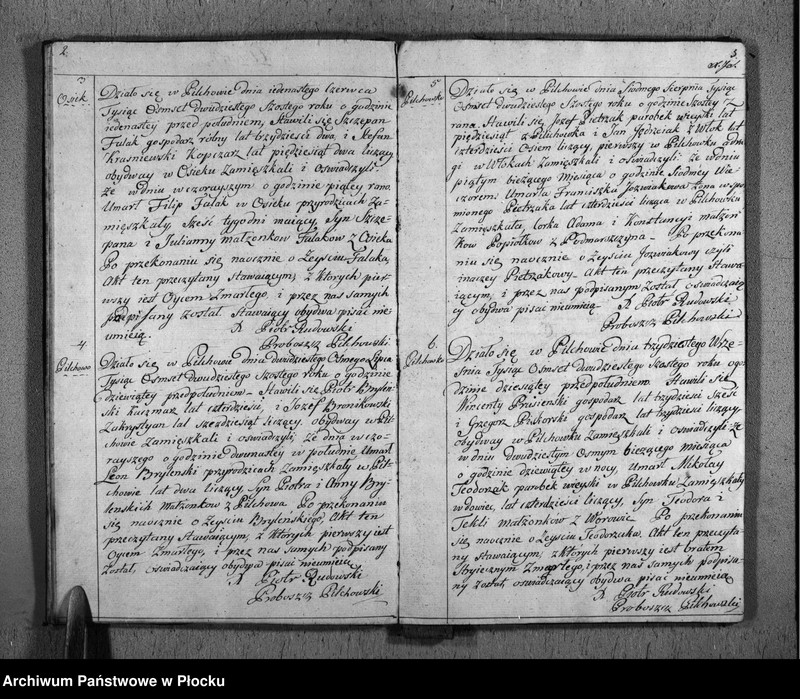 2
3
Osiek
Działo się w Pilchowie dnia iedenastego Czerwca
Tysiąc Osmset dwudziestego Szostego roku o godzinie
iedenastey przed południem, Stawili się Szczepan
Fulak gospodarz rolny lat trzydzieści dwa, i Stefan
Krasniewski Kopczarz lat pięćdziesiąt dwa liczący
obydway w Osieku Zamięszkali i Oswiadczyli
że w dniu wczorayszym o godzinie piątey rano
Umarł Filip Fulak w Osieku przy rodzicach Za-
mięszkały, Sześć tygodni maiący, Syn Szcze-
pana i Julianny małżonkow Fulakow z Osieka
Po przekonaniu się naocznie o Zeyściu Fulaka,
Akt ten przeczytany Stawaiącym, z których pier-
wszy iest Oycem Zmarłego, i przez nas Samych
podpisany został. Stawaiący obydwa pisać nie
umieią.
X Piotr Rudowski
Proboszcz Pilchowski
4
Pilchowo
Działo się w Pilchowie dnia dwudziestego Osmego Lipca
Tysiąc Osmset dwudziestego Szostego roku o godzinie
dziewiątey przed południem. Stawili się Piotr Bryleń-
ski Kuczmarz lat czterdzieści, i Jozef Bronikowski
Zakrystyan lat Szezdziesiąt liczący. obydway w Pil-
chowie Zamięszkali i oswiadczyli, że dnia wczo-
rayszego o godzinie dwunastey w południe Umarł
Leon Brylenski przy rodzicach Zamięszkały w Pil-
chowie lat dwa liczący, Syn Piotra i Anny Bry-
leńskich Małżonkow z Pilchowa. Po przekonaniu
Się naocznie o Zeyściu Brylenskiego, Akt ten
przeczytany Stawaiącym, z których pierwszy iest
Oycem Zmarłego, i przez nas Samych podpisany
został, oświadczaiący obydwa pisać nieumieią
X Piotr Rudowski
Proboszcz Pilchowski
3.
5
Pilchowk
Działo się w Pilchowie dnia Siodmego Sierpnia Tysiąc
Osmset dwudziestego Szostego roku o godzinie Szostey z
rana. Stawili się Jozef Pietrzak parobek wieyski lat
piędziesiąt z Pilchowka i Jan Jozwiak z Włok lat
czterdzieści Osiem liczący, pierwszy w Pilchowku a dru-
gi w Włokach Zamięszkali i oswiadczyli: że w dniu
piątym bieżącego Miesiąca o godzinie Siodmey Wie-
czorem. Umarła Franiszka Jozwiakowa Żona wspo-
mionego Pietrzaka lat czterdzieści licząca w Pilchowku
Zamięszkała, Corka Adama i Konstancyi małżon-
kow Popiołkow z Podmarszczyna. Po przekona
niu się naocznie o Zeyściu Jozwiakowy czyli
inaczey Pietrzakowy. Akt ten przeczytany Stawa-
iącym, i przez nas podpisanym został, oswiadczaią
cy obydwa pisać nieumieią.
X Piotr Rudowski
Proboszcz Pilchowski
6.
Pilchowko
Działo się w Pilchowie dnia trzydziestego Wrze-
śnia Tysiąc Osmset dwudziestego Szostego roku ogo-
dzinie dziesiątey przedpołudniem. Stawili się
Wincenty Prusienski gospodarz lat trzydzieści Sześć
i Grzegorz Piskorski gospodarz lat trzydzieści liczący
Obydway w Pilchowku Zamięszkali i oswiadczyli że
w dniu dwudziestym Osmym bieżącego miesiąca
o godzinie dziewiątey w nocy, Umarł Mikołay
Teodorzak parobek wieyski w Pilchowku Zamięszkały
wdowiec, lat czterdzieści liczący, Syn Teodora i
Tekli małżonkow z Worowic Po przekonaniu
Się naocznie o Zeyściu Teodorzaka. Akt ten przeczyta-
ny Stawaiącym, z których pierwszy iest bratem
Stryiecznym Zmarłego, i przez nas Samych podpisa-
ny został, oswiadczaiący obydwa pisać nieumieią
X Piotr Rudowski
Proboszcz Pilchowski
Archiwum Państwowe w Płocku